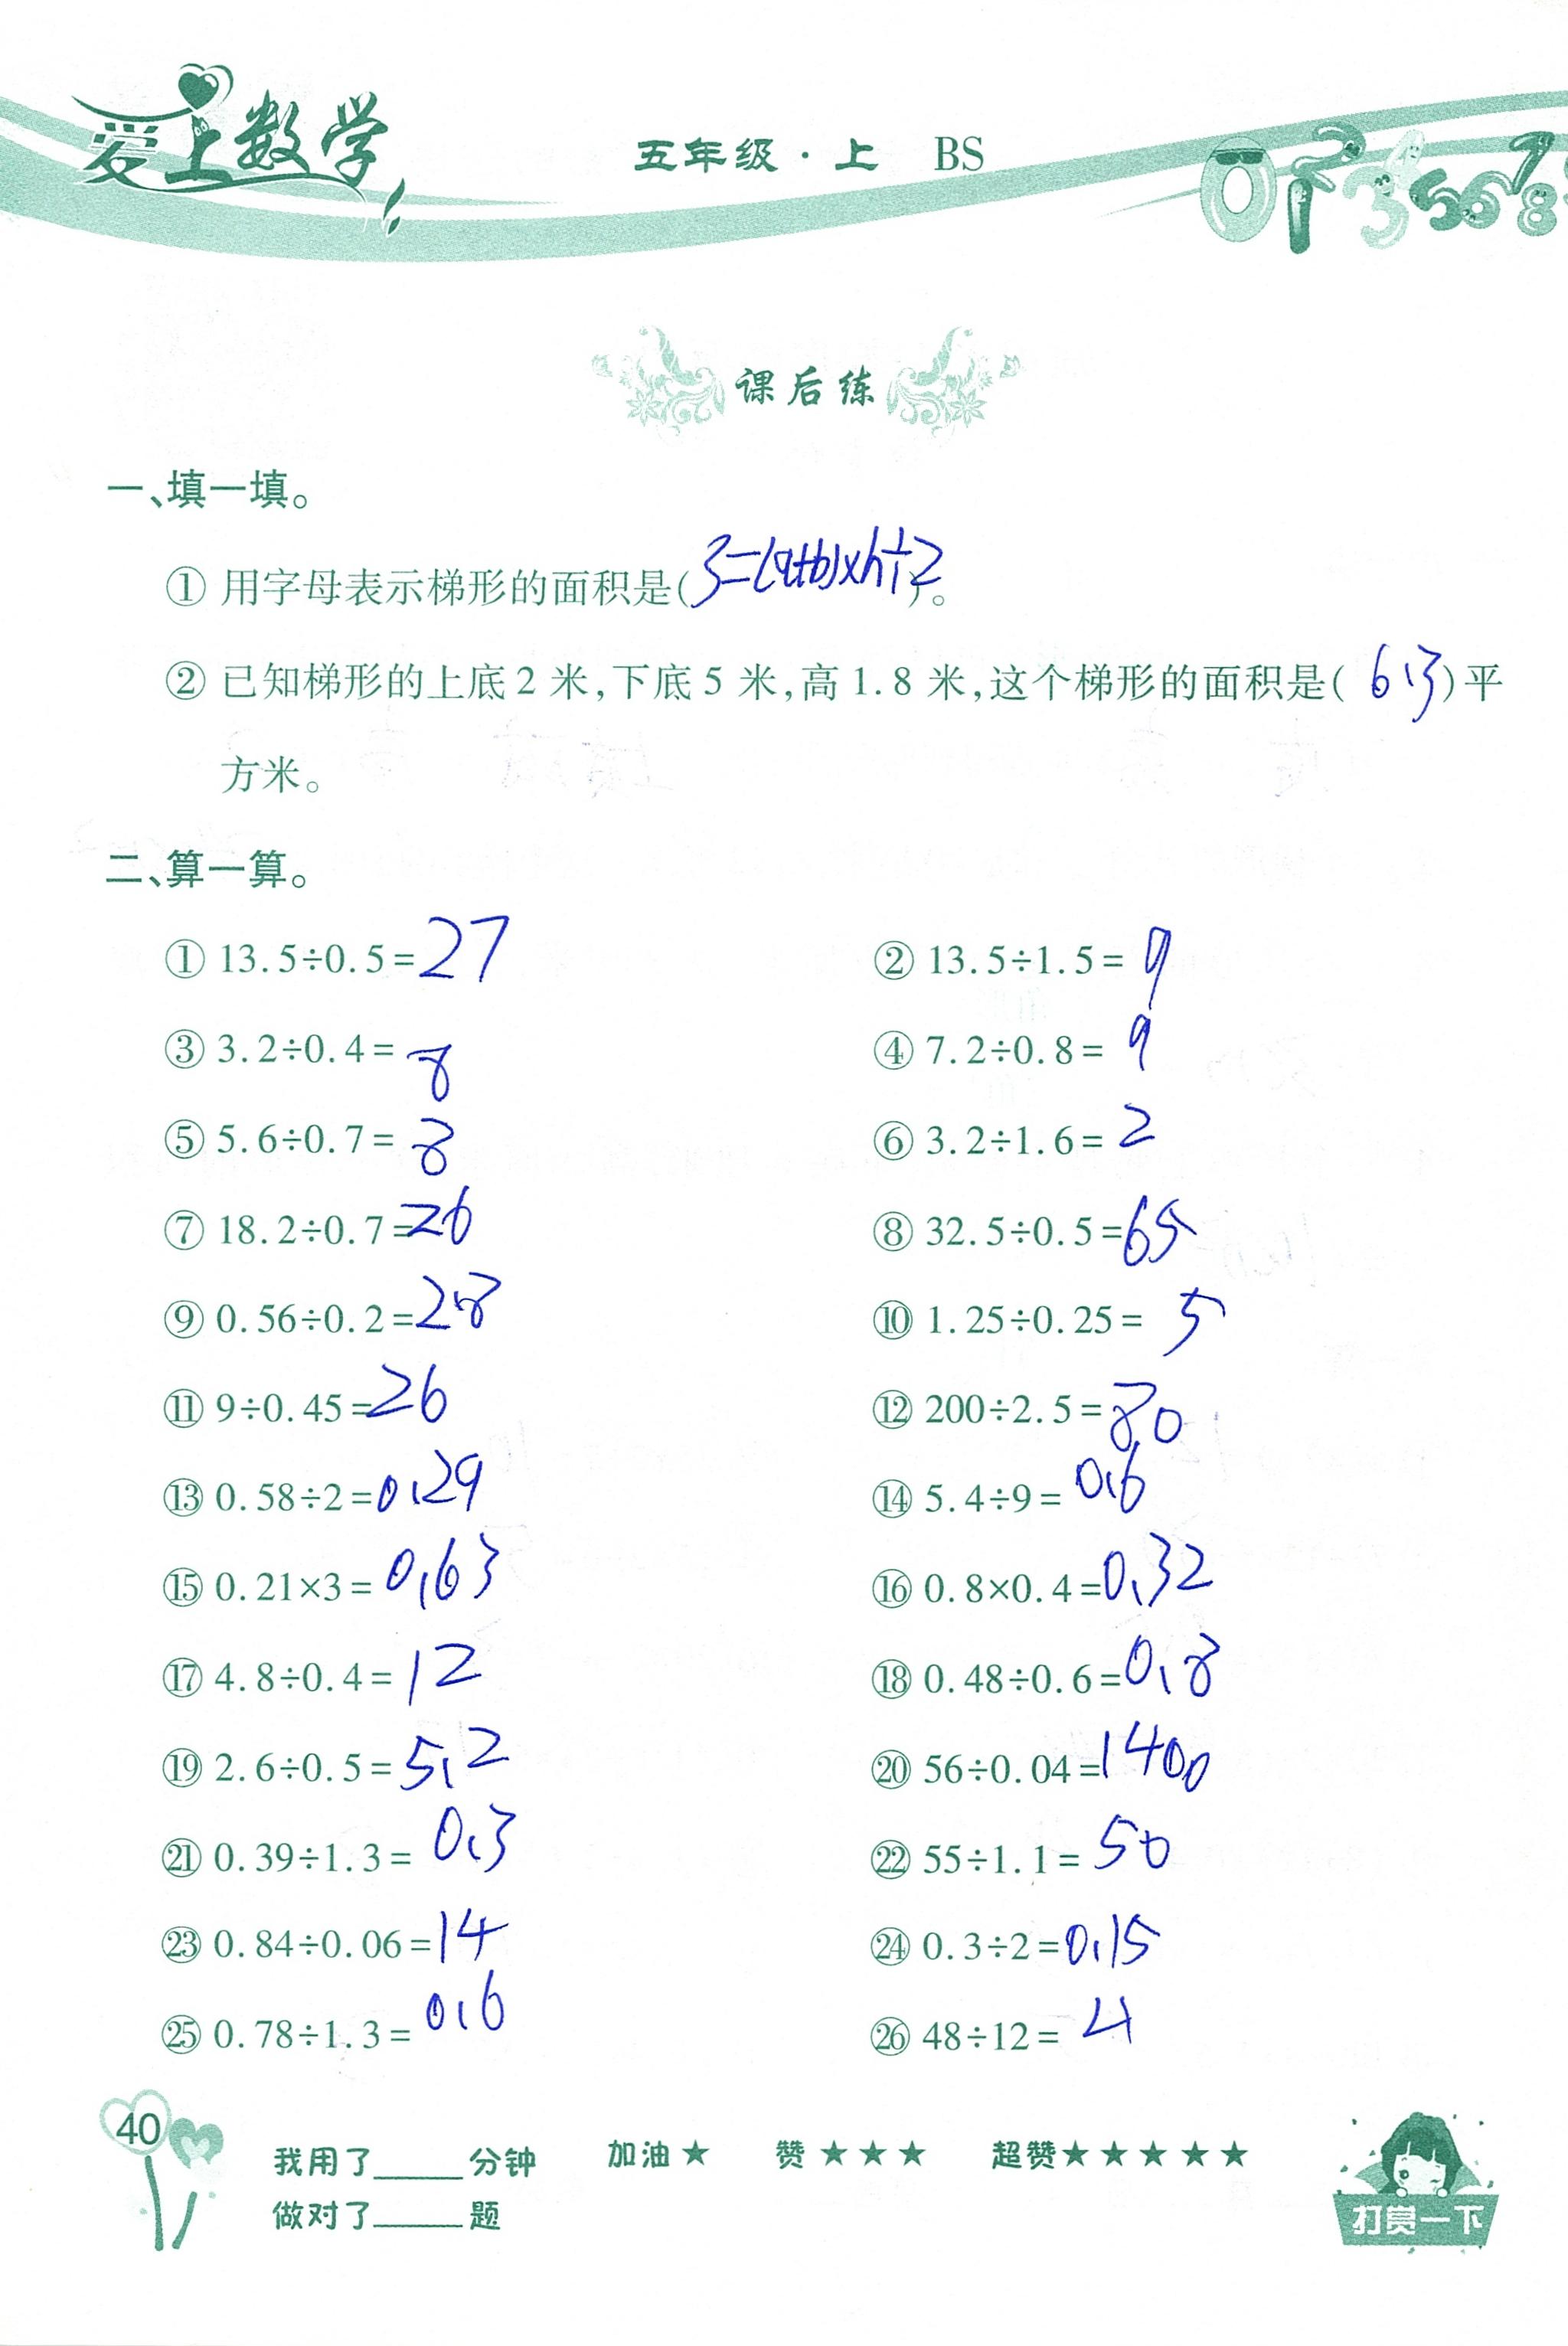 爱上数学
五年级·上 BS
课后练
一、填一填。
① 用字母表示梯形的面积是(S=(a+b)×h÷2)。
② 已知梯形的上底2米,下底5米,高1.8米,这个梯形的面积是(6.3)平
方米。
二、算一算。
① 13.5÷0.5=27 ② 13.5÷1.5=9
③ 3.2÷0.4=8 ④ 7.2÷0.8=9
⑤ 5.6÷0.7=8 ⑥ 3.2÷1.6=2
⑦ 18.2÷0.7=26 ⑧ 32.5÷0.5=65
⑨ 0.56÷0.2=2.8 ⑩ 1.25÷0.25=5
⑪ 9÷0.45=26 ⑫ 200÷2.5=80
⑬ 0.58÷2=0.29 ⑭ 5.4÷9=0.6
⑮ 0.21×3=0.63 ⑯ 0.8×0.4=0.32
⑰ 4.8÷0.4=12 ⑱ 0.48÷0.6=0.8
⑲ 2.6÷0.5=5.2 ⑳ 56÷0.04=1400
㉑ 0.39÷1.3=0.3 ㉒ 55÷1.1=50
㉓ 0.84÷0.06=14 ㉔ 0.3÷2=0.15
㉕ 0.78÷1.3=0.6 ㉖ 48÷12=4
40
我用了____分钟 加油★ 赞★★★ 超赞★★★★★
做对了____题
打赏一下